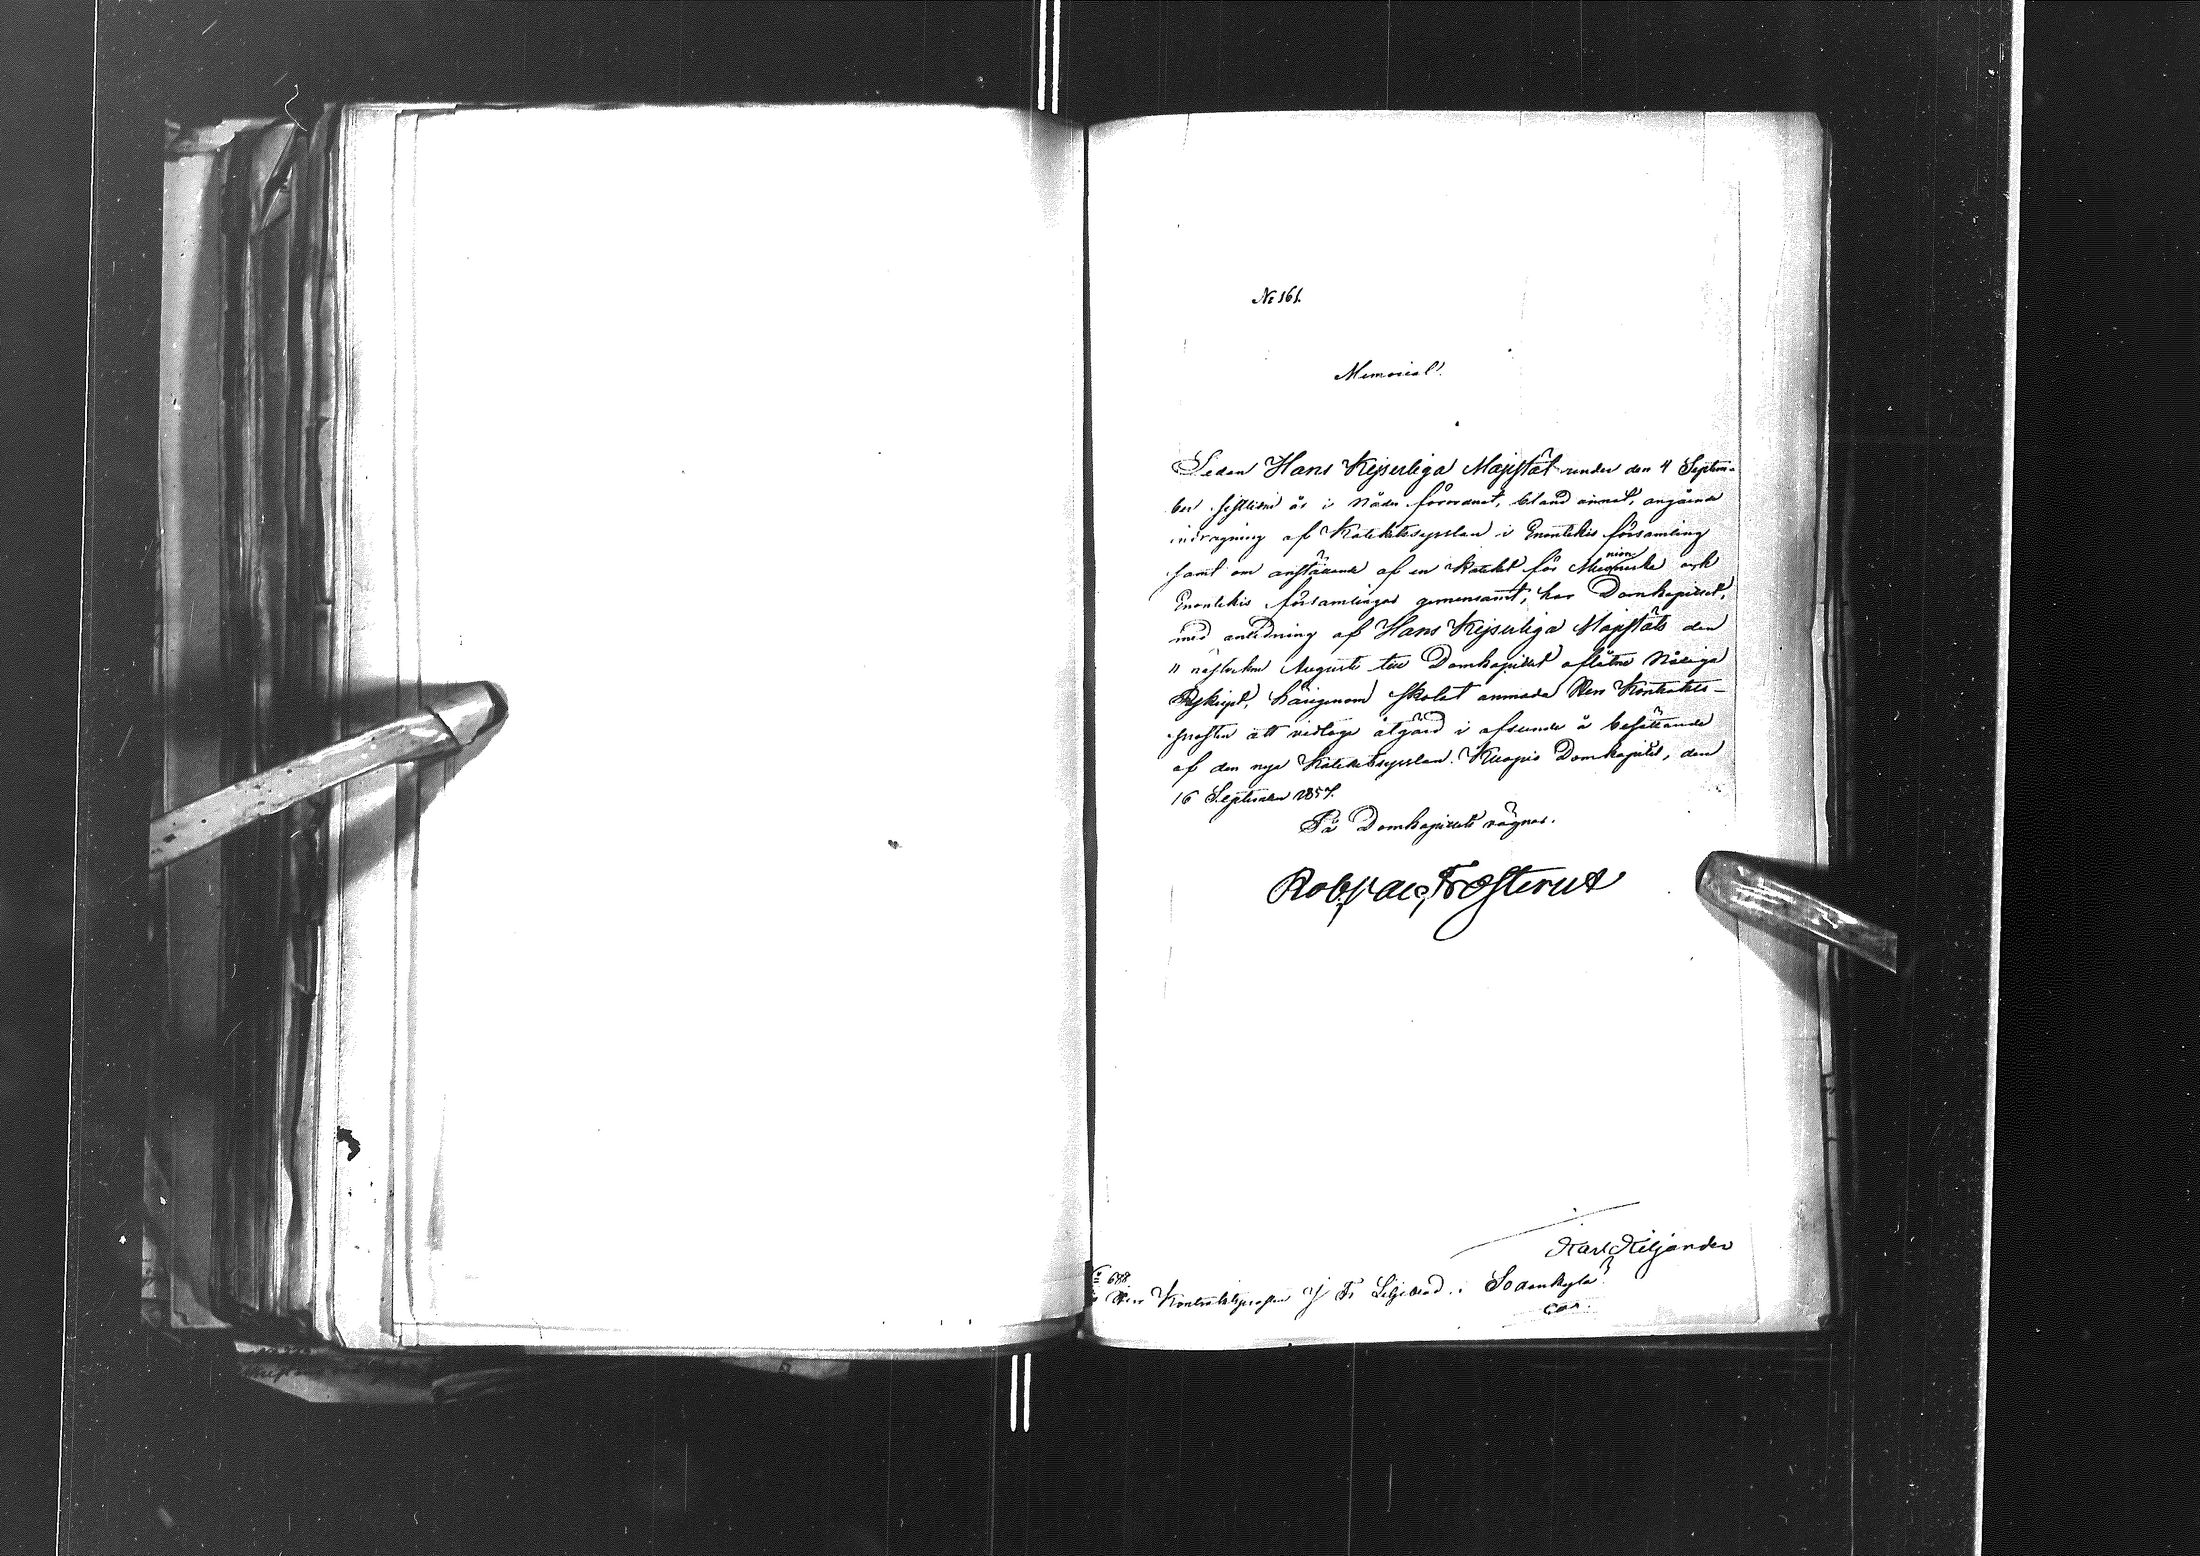 No 161.
Memorial.
Sedan Hans Kejserliga Majestät under den 4 Septem-
ber sistlidne år i Nåder förordnat, bland annat, angående
indragning af Kateketssysslan i Enontekis församling
samt om anställande af en Kateket för Muonionniska och
Enontekis församlingar gemensamt, har Domkapitlet,
med anledning af Hans Kejserliga Majestäts den
11 nästvikne Augusti till Domkapitlet aflåtne Nådiga
Reskript, härigenom skolat anmoda Herr Kontrakts-
prosten att vidtaga åtgärd i afseende å besättande
af den nya Kateketssysslan. Kuopio Domkapitel, den
16 September 1857.
På Domkapitlets vägnar.
Rob. Val. Frosterus
Karl Kiljander
688
Herr Kontraktsprosten J Fr Liljeblad i Sodankylä